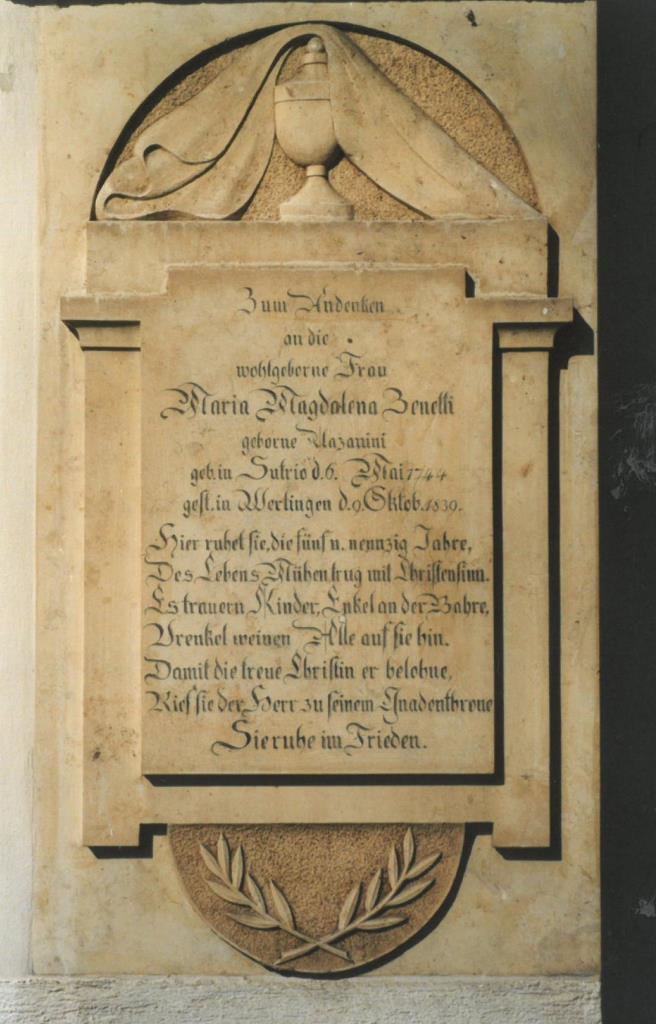 Zum Andenken
an die
wohlgeborne Frau
Maria Magdalena Benelli
geborne Nazanini
geb. in Sutrio d. 6. Mai 1744
gest. in Wertingen d. 9. Oktob. 1839.
Hier ruhet sie, die fünf u. neunzig Jahre,
Des Lebens Mühen trug mit Christensinn.
Es trauern Kinder, Enkel an der Bahre,
Urenkel weinen Alle auf sie hin.
Damit die treue Christin er belohne,
Rief sie der Herr zu seinem Gnadenthrone
Sie ruhe im Frieden.